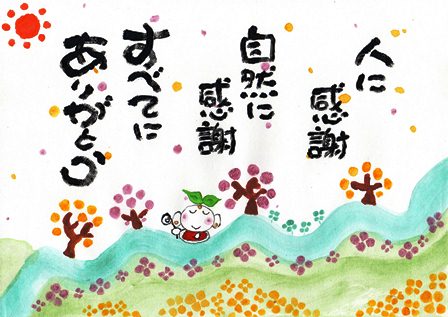 人に
感謝
自然に
感謝
すべてに
ありがとう